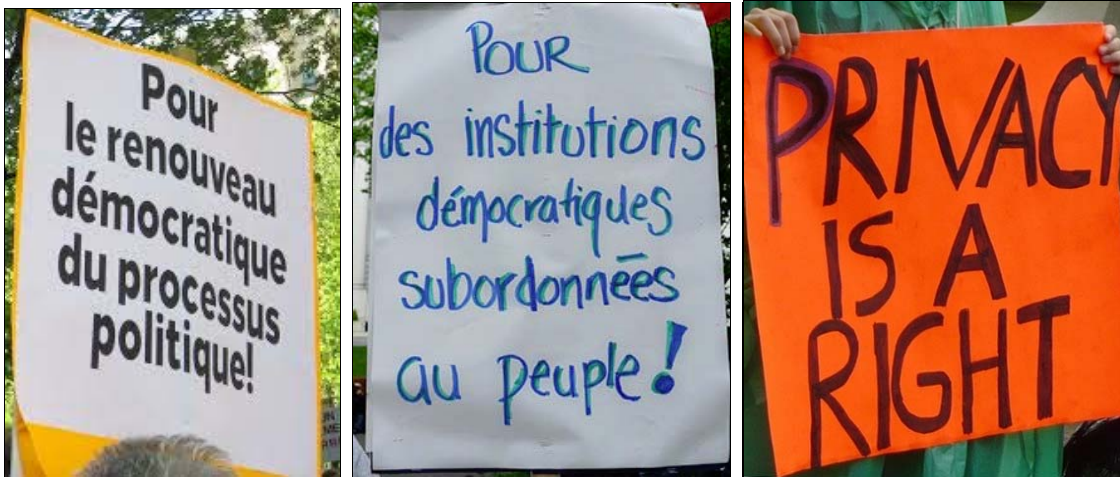 Pour
le renouveau
démocratique
du processus
politique!
POUR
des institutions
démocratiques
subordonnēēs
au peuple!
PRIVACY
IS A
RIGHT